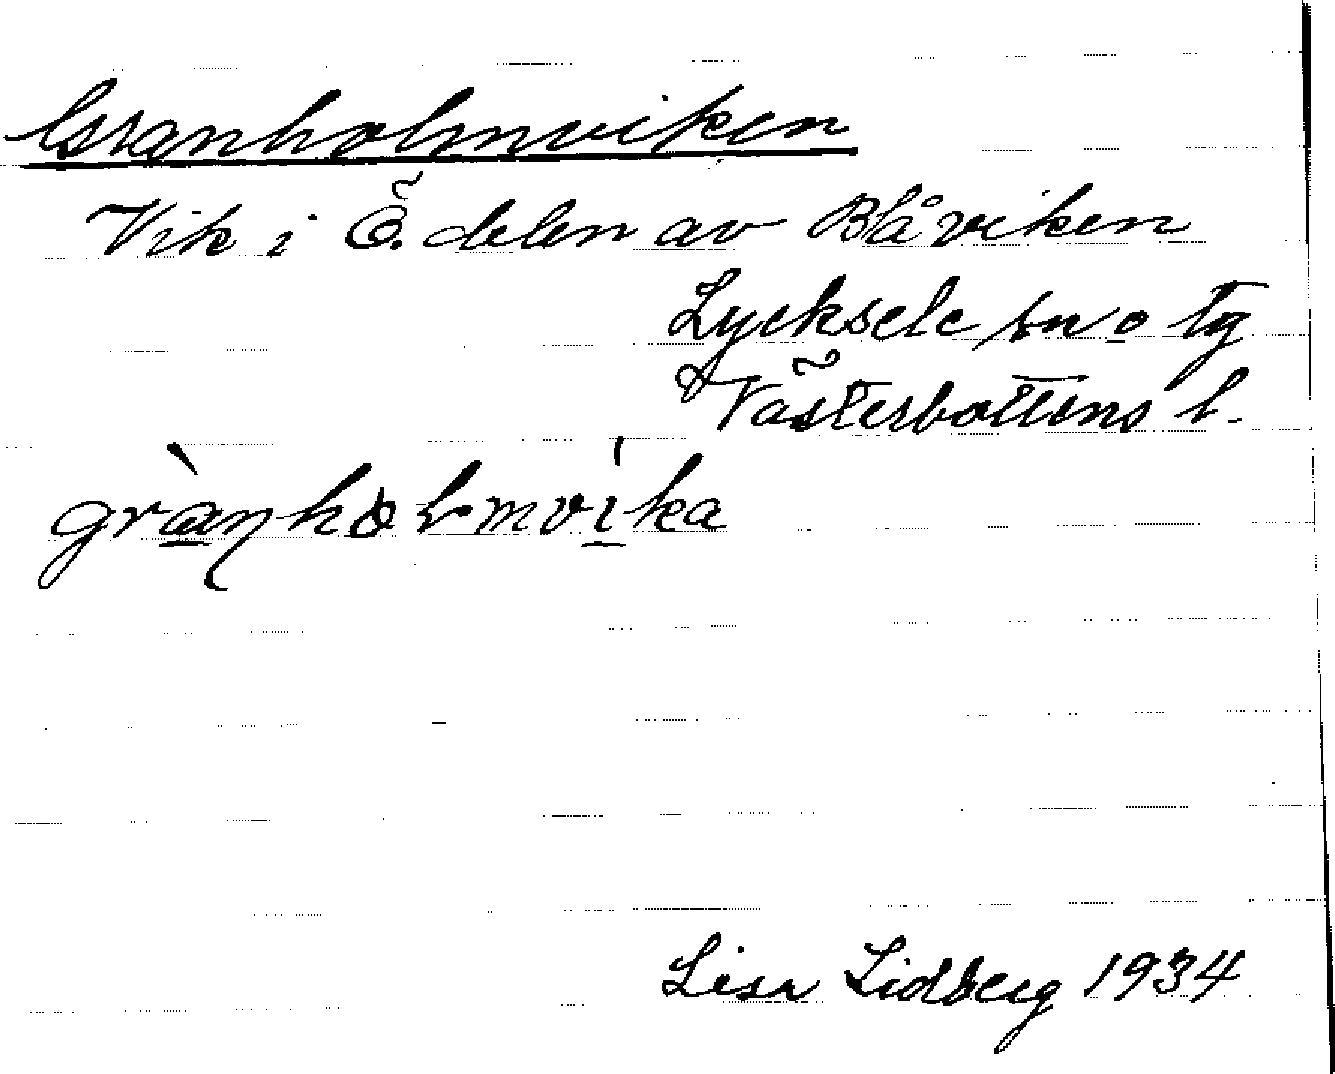 Granholmviken
Vik i Ö. delen av Blåviken
Lycksele sn o tg
Västerbottens l.
grànholmvíka
Lisa Lidberg 1934